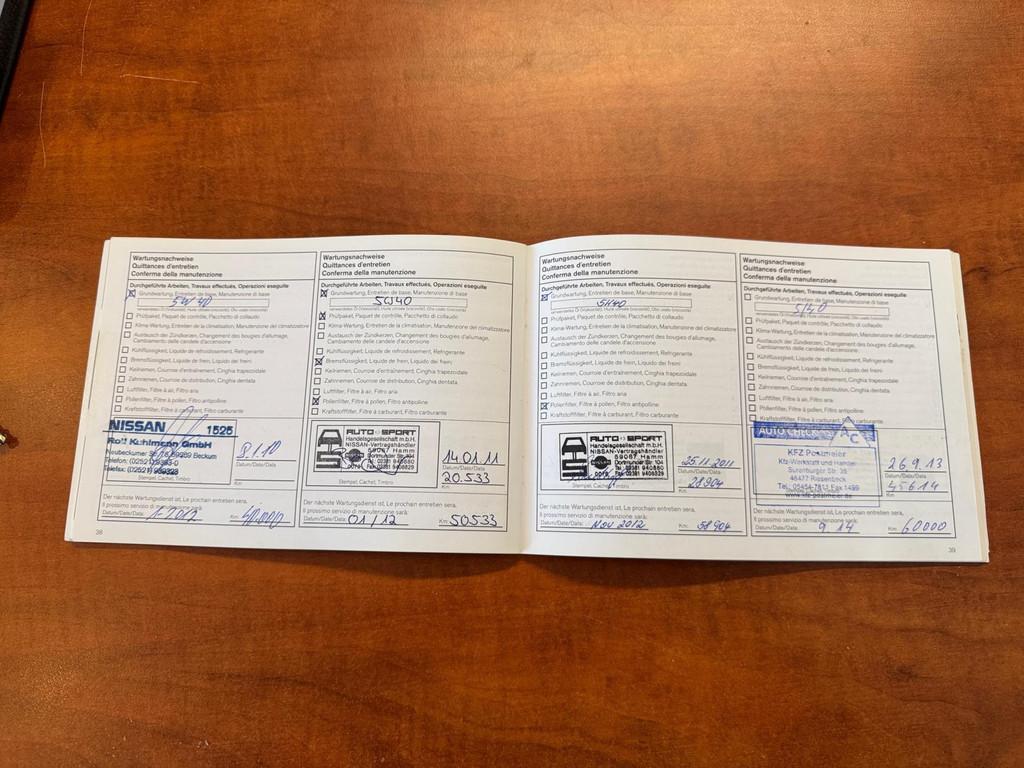 Wartungsnachweise
Quittances d'entretien
Conferma della manutenzione
Durchgeführte Arbeiten, Travaux effectués, Operazioni eseguite
Grundwartung, Entretien de base, Manutenzione di base
5W40
Prüfpaket, Paquet de contrôle, Pacchetto di collaudo
Klima-Wartung, Entretien de la climatisation, Manutenzione del climatizzatore
Austausch der Zündkerzen, Changement des bougies d'allumage,
Cambiamento delle candele d'accensione
Kühlflüssigkeit, Liquide de refroidissement, Refrigerante
Bremsflüssigkeit, Liquide de frein, Liquido dei freini
Keilriemen, Courroie d'entraînement, Cinghia trapezoidale
Zahnriemen, Courroie de distribution, Cinghia dentata
Luftfilter, Filtre à air, Filtro aria
Pollenfilter, Filtre à pollen, Filtro antipolline
Kraftstofffilter, Filtre à carburant, Filtro carburante
NISSAN 1525
Rolf Kuhlmann GmbH
Neubeckumer Beckum
Datum/Date/Data
Km
Stempel, Cachet, Timbro
Der nächste Wartungsdienst ist, Le prochain entretien sera,
Il prossimo servizio di manutenzione sarà:
Datum/Date/Data: Km: 40.000
38
Wartungsnachweise
Quittances d'entretien
Conferma della manutenzione
Durchgeführte Arbeiten, Travaux effectués, Operazioni eseguite
Grundwartung, Entretien de base, Manutenzione di base
5W40
Prüfpaket, Paquet de contrôle, Pacchetto di collaudo
Klima-Wartung, Entretien de la climatisation, Manutenzione del climatizzatore
Austausch der Zündkerzen, Changement des bougies d'allumage,
Cambiamento delle candele d'accensione
Kühlflüssigkeit, Liquide de refroidissement, Refrigerante
Bremsflüssigkeit, Liquide de frein, Liquido dei freini
Keilriemen, Courroie d'entraînement, Cinghia trapezoidale
Zahnriemen, Courroie de distribution, Cinghia dentata
Luftfilter, Filtre à air, Filtro aria
Pollenfilter, Filtre à pollen, Filtro antipolline
Kraftstofffilter, Filtre à carburant, Filtro carburante
AUTO SPORT
Handelsgesellschaft m.b.H.
NISSAN-Vertragshändler
59067 Hamm
Dortmunder Str. 104
Tel. 02381 940880
Fax 02381 9406829
14.01.11
Datum/Date/Data
20.533
Km
Stempel, Cachet, Timbro
Der nächste Wartungsdienst ist, Le prochain entretien sera,
Il prossimo servizio di manutenzione sarà:
Datum/Date/Data: 01/12 Km: 50533
Wartungsnachweise
Quittances d'entretien
Conferma della manutenzione
Durchgeführte Arbeiten, Travaux effectués, Operazioni eseguite
Grundwartung, Entretien de base, Manutenzione di base
Prüfpaket, Paquet de contrôle, Pacchetto di collaudo
Klima-Wartung, Entretien de la climatisation, Manutenzione del climatizzatore
Austausch der Zündkerzen, Changement des bougies d'allumage,
Cambiamento delle candele d'accensione
Kühlflüssigkeit, Liquide de refroidissement, Refrigerante
Bremsflüssigkeit, Liquide de frein, Liquido dei freini
Keilriemen, Courroie d'entraînement, Cinghia trapezoidale
Zahnriemen, Courroie de distribution, Cinghia dentata
Luftfilter, Filtre à air, Filtro aria
Pollenfilter, Filtre à pollen, Filtro antipolline
Kraftstofffilter, Filtre à carburant, Filtro carburante
AUTO SPORT
Handelsgesellschaft m.b.H.
NISSAN-Vertragshändler
59067 Hamm
Dortmunder Str. 104
Tel. 02381 940880
Fax 02381 9406829
25.11.2011
Datum/Date/Data
28904
Km
Stempel, Cachet, Timbro
Der nächste Wartungsdienst ist, Le prochain entretien sera,
Il prossimo servizio di manutenzione sarà:
Datum/Date/Data: Nov 2012 Km: 58904
Wartungsnachweise
Quittances d'entretien
Conferma della manutenzione
Durchgeführte Arbeiten, Travaux effectués, Operazioni eseguite
Grundwartung, Entretien de base, Manutenzione di base
Prüfpaket, Paquet de contrôle, Pacchetto di collaudo
Klima-Wartung, Entretien de la climatisation, Manutenzione del climatizzatore
Austausch der Zündkerzen, Changement des bougies d'allumage,
Cambiamento delle candele d'accensione
Kühlflüssigkeit, Liquide de refroidissement, Refrigerante
Bremsflüssigkeit, Liquide de frein, Liquido dei freini
Keilriemen, Courroie d'entraînement, Cinghia trapezoidale
Zahnriemen, Courroie de distribution, Cinghia dentata
Luftfilter, Filtre à air, Filtro aria
Pollenfilter, Filtre à pollen, Filtro antipolline
Kraftstofffilter, Filtre à carburant, Filtro carburante
AUTO CHECK AC
KFZ Poalmeier
Kfz-Werkstatt und Handel
Surenburger Str. 35
48477 Riesenbeck
Tel. 05454-7813 Fax 1499
www.kfz-poalmeier.de
26.9.13
Datum/Date/Data
45614
Km
Der nächste Wartungsdienst ist, Le prochain entretien sera,
Il prossimo servizio di manutenzione sarà:
Datum/Date/Data: 9.14 Km: 60000
39